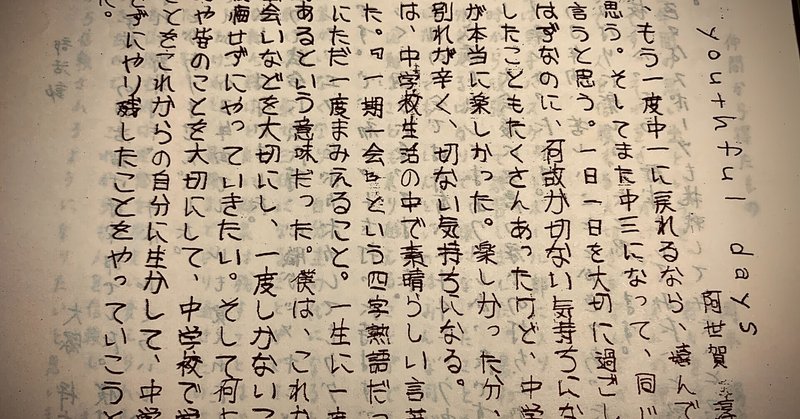 youthful days
阿世賀
、もう一度中一に戻れるなら、喜んで
思う。そしてまた中三になって、同じ
言うと思う。一日一日を大切に過ごし
はずなのに、何故か切ない気持ちにな
したこともたくさんあったけど、中学
が本当に楽しかった。楽しかった分、
別れが辛く、切ない気持ちになる。
は、中学校生活の中で素晴らしい言葉
た。『一期一会』という四字熟語だっ
にただ一度まみえること。一生に一度
あるという意味だった。僕は、これか
会いなどを大切にし、一度しかない
後悔せずにやっていきたい。そして何
や皆のことを大切にして、中学校で学
ことをこれからの自分に生かして、中学
ずにやり残したことをやっていこうと